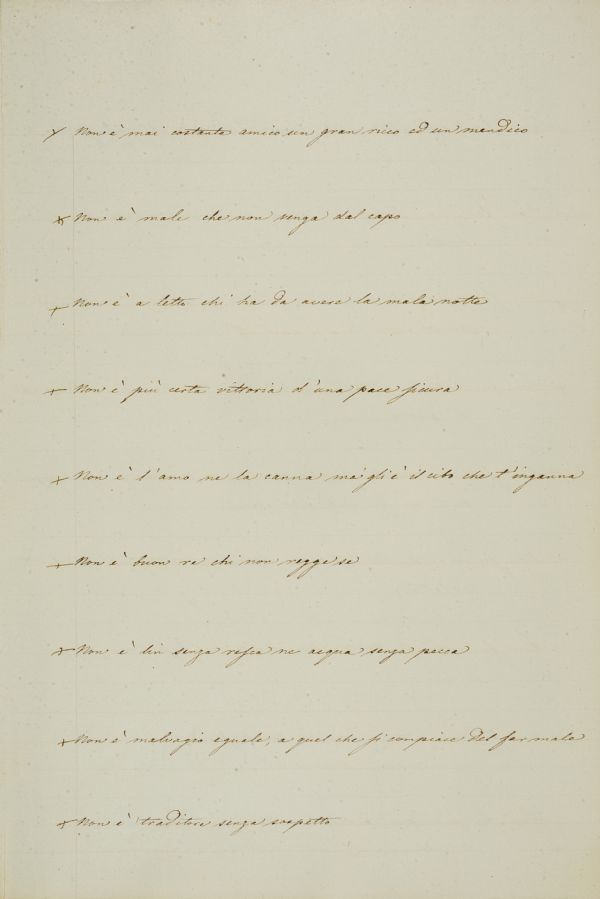 Non è mai costante amico un gran rico ed un mendico
Non è male che non venga dal capo
Non è a letto chi ha da avere la mala notte
Non è più certa vittoria d'una pace sicura
Non è l'amo ne la canna ma gli è il cibo che t'inganna
Non è buon re chi non regge se
Non è lin senza resca ne acqua senza pecca
Non è malvagio eguale, a quel che si compiace del far male
Non è traditore senza sospetto